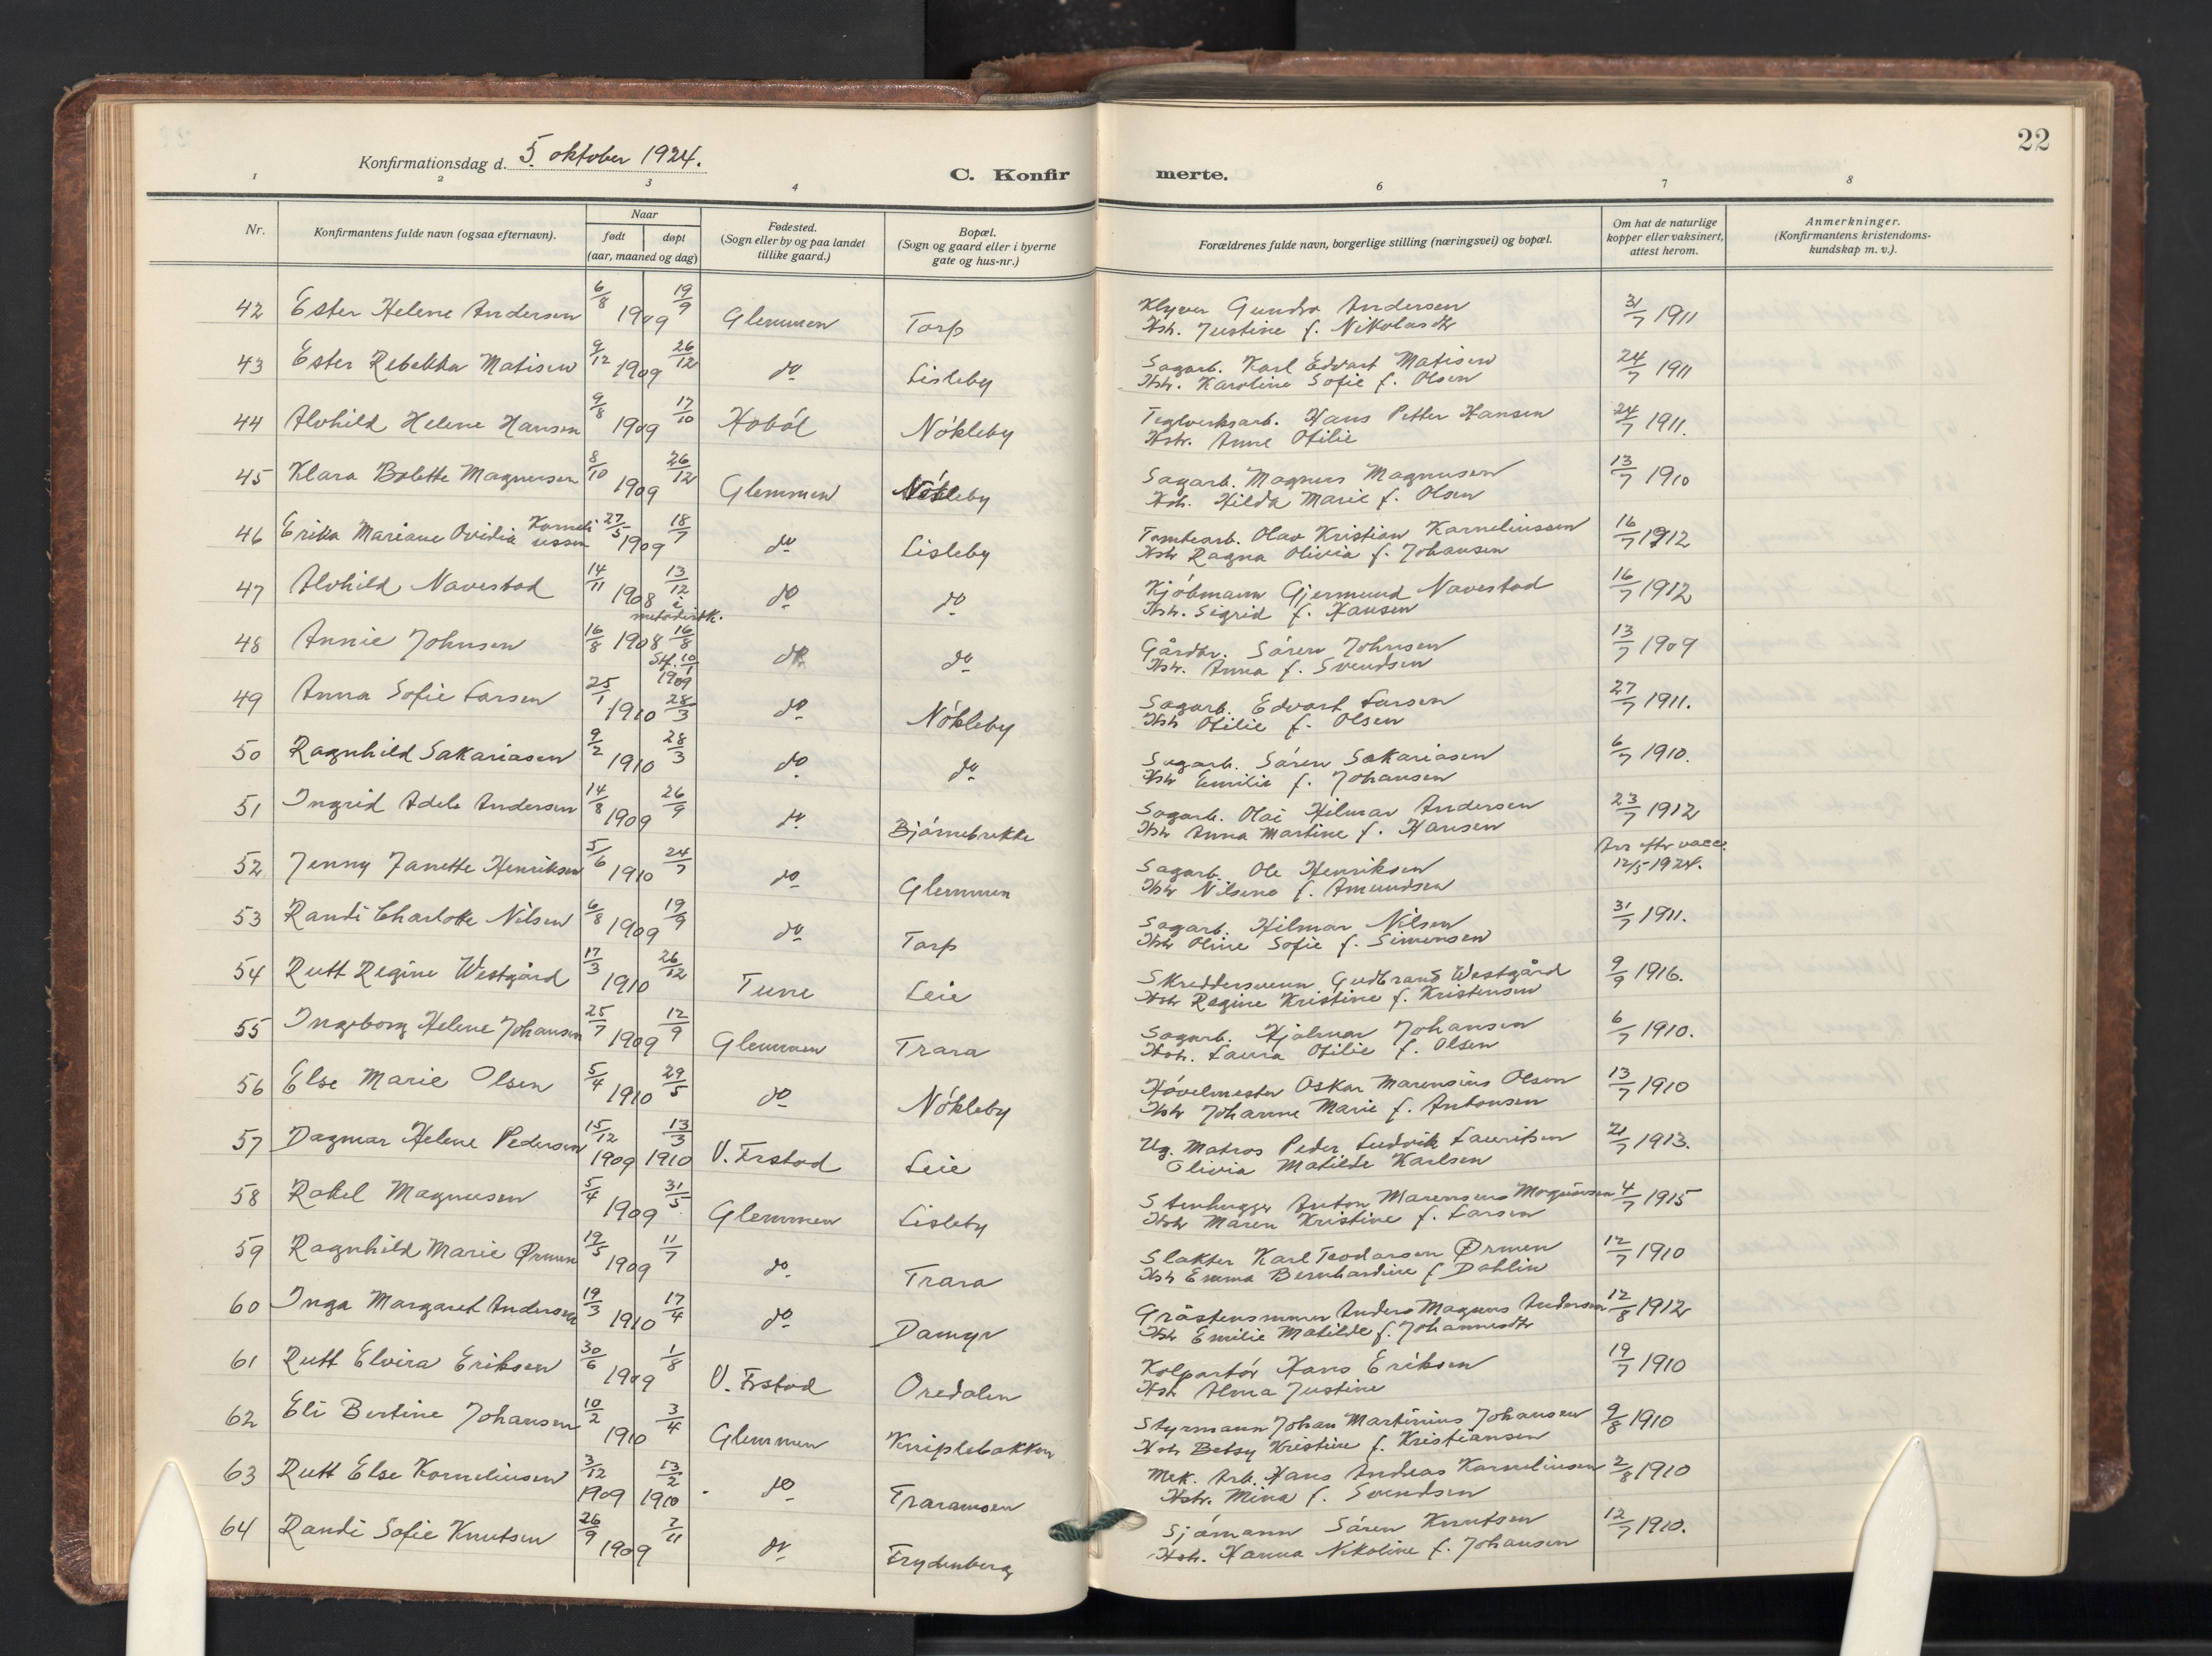 22
Konfirmationsdag d. 5. oktober 1924.
C. Konfir merte.
1 2 3 4 6 7 8
Nr. Konfirmantens fulde navn (ogsaa efternavn). Naar født døpt (aar, maaned og dag) Fødested. (Sogn eller by og paa landet tillike gaard.) Bopæl. (Sogn og gaard eller i byerne gate og hus-nr.) Forældrenes fulde navn, borgerlige stilling (næringsvei) og bopæl. Om hat de naturlige kopper eller vaksinert, attest herom. Anmerkninger. (Konfirmantens kristendomskundskap m. v.).
42 Ester Helene Andersen 6/8 1909 19/9 Glemmen Torp Klyver Gundro Andersen 31/7 1911
Hstr. Justine f. Nikolasdtr
43 Ester Rebekka Matisen 9/12 1909 26/12 do Lisleby Sagarb. Karl Edvart Matisen 24/7 1911
Hstr. Karoline Sofie f. Olsen
44 Alvhild Helene Hansen 9/8 1909 17/10 Hobøl Nökleby Teglverksarb. Hans Petter Hansen 24/7 1911.
Hstr. Anne Otilie
45 Klara Bolette Magnusen 8/10 1909 26/12 Glemmen Nökleby Sagarb. Magnus Magnusen 13/7 1910
Hstr. Hilda Marie f. Olsen
46 Erika Mariane Ovidia Korneliussen 27/5 1909 18/7 do Lisleby Tomtearb. Olav Kristian Korneliussen 16/7 1912
Hstr Ragna Olivia f. Johansen
47 Alvhild Navestad 14/11 1908 13/12 i metodistk. do do Kjöbmann Gjermund Navestad 16/7 1912
Hstr. Sigrid f. Hansen
48 Annie Johnsen 16/8 1908 16/8 Stf. 10/1 1909 do do Gårdbr. Sören Johnsen 13/7 1909
Hstr. Anna f. Svendsen
49 Anna Sofie Larsen 25/1 1910 28/3 do Nökleby Sagarb. Edvart Larsen 27/7 1911.
Hstr Otilie f. Olsen
50 Ragnhild Sakariasen 9/2 1910 28/3 do do Sagarb. Sören Sakariasen 6/7 1910.
Hstr Emilie f. Johansen
51 Ingrid Adele Andersen 14/8 1909 26/9 do Björnebrekke Sagarb. Olai Hilmar Andersen 23/7 1912
Hstr Anna Martine f. Hansen
52 Jenny Janette Henriksen 5/6 1910 24/7 do Glemmen Sagarb. Ole Henriksen Arr eftr vacc. 12/5-1924.
Hstr Nilsine f. Amundsen
53 Randi Charlotte Nilsen 6/8 1909 19/9 do Torp Sagarb. Hilmar Nilsen 31/7 1911.
Hstr Oline Sofie f. Simensen
54 Rutt Regine Westgård 17/3 1910 26/12 Tune Leie Skreddersvenn Gudbrand Westgård 9/9 1916.
Hstr Regine Kristine f. Kristensen
55 Ingeborg Helene Johansen 25/7 1909 12/9 Glemmen Trara Sagarb. Hjalmar Johansen 6/7 1910.
Hstr. Laura Otilie f. Olsen
56 Else Marie Olsen 5/4 1910 29/5 do Nökleby Hövelmester Oskar Marensius Olsen 13/7 1910
Hstr Johanne Marie f. Antonsen
57 Dagmar Helene Pedersen 15/12 1909 13/3 1910 V. Frstad Leie Ug. Matros Peder Ludvik Lauritsen 21/7 1913.
Olivia Matilde Karlsen
58 Rakel Magnusen 5/4 1909 31/5 Glemmen Lisleby Stenhugger Anton Marensius Magnussen 4/7 1915
Hstr Maren Kristine f. Larsen
59 Ragnhild Marie Ørmen 19/5 1909 11/7 do Trara Slakter Karl Teodorsen Ørmen 12/7 1910
Hstr Emma Bernhardine f Dahlin
60 Inga Margaret Andersen 19/3 1910 17/4 do Damyr Gråstensmmer Anders Magnus Andersen 12/8 1912
Hstr Emilie Matilde f. Johannesdtr
61 Rutt Elvira Eriksen 30/6 1909 1/8 V. Frstad Oredalen Kolportör Hans Eriksen 19/7 1910
Hstr Alma Justine
62 Eli Bertine Johansen 10/2 1910 3/4 Glemmen Kniplebakken Styrmann Johan Martinius Johansen 9/8 1910
Hstr Betsy Kristine f. Kristiansen
63 Rutt Else Korneliusen 3/12 1909 13/2 1910 do Traramoen Mek. Arb. Hans Andreas Korneliusen 2/8 1910
Hstr. Mina f. Svendsen
64 Randi Sofie Knutsen 26/9 1909 7/11 do Frydenberg Sjömann Sören Knutsen 12/7 1910.
Hstr. Hanna Nikoline f. Johansen